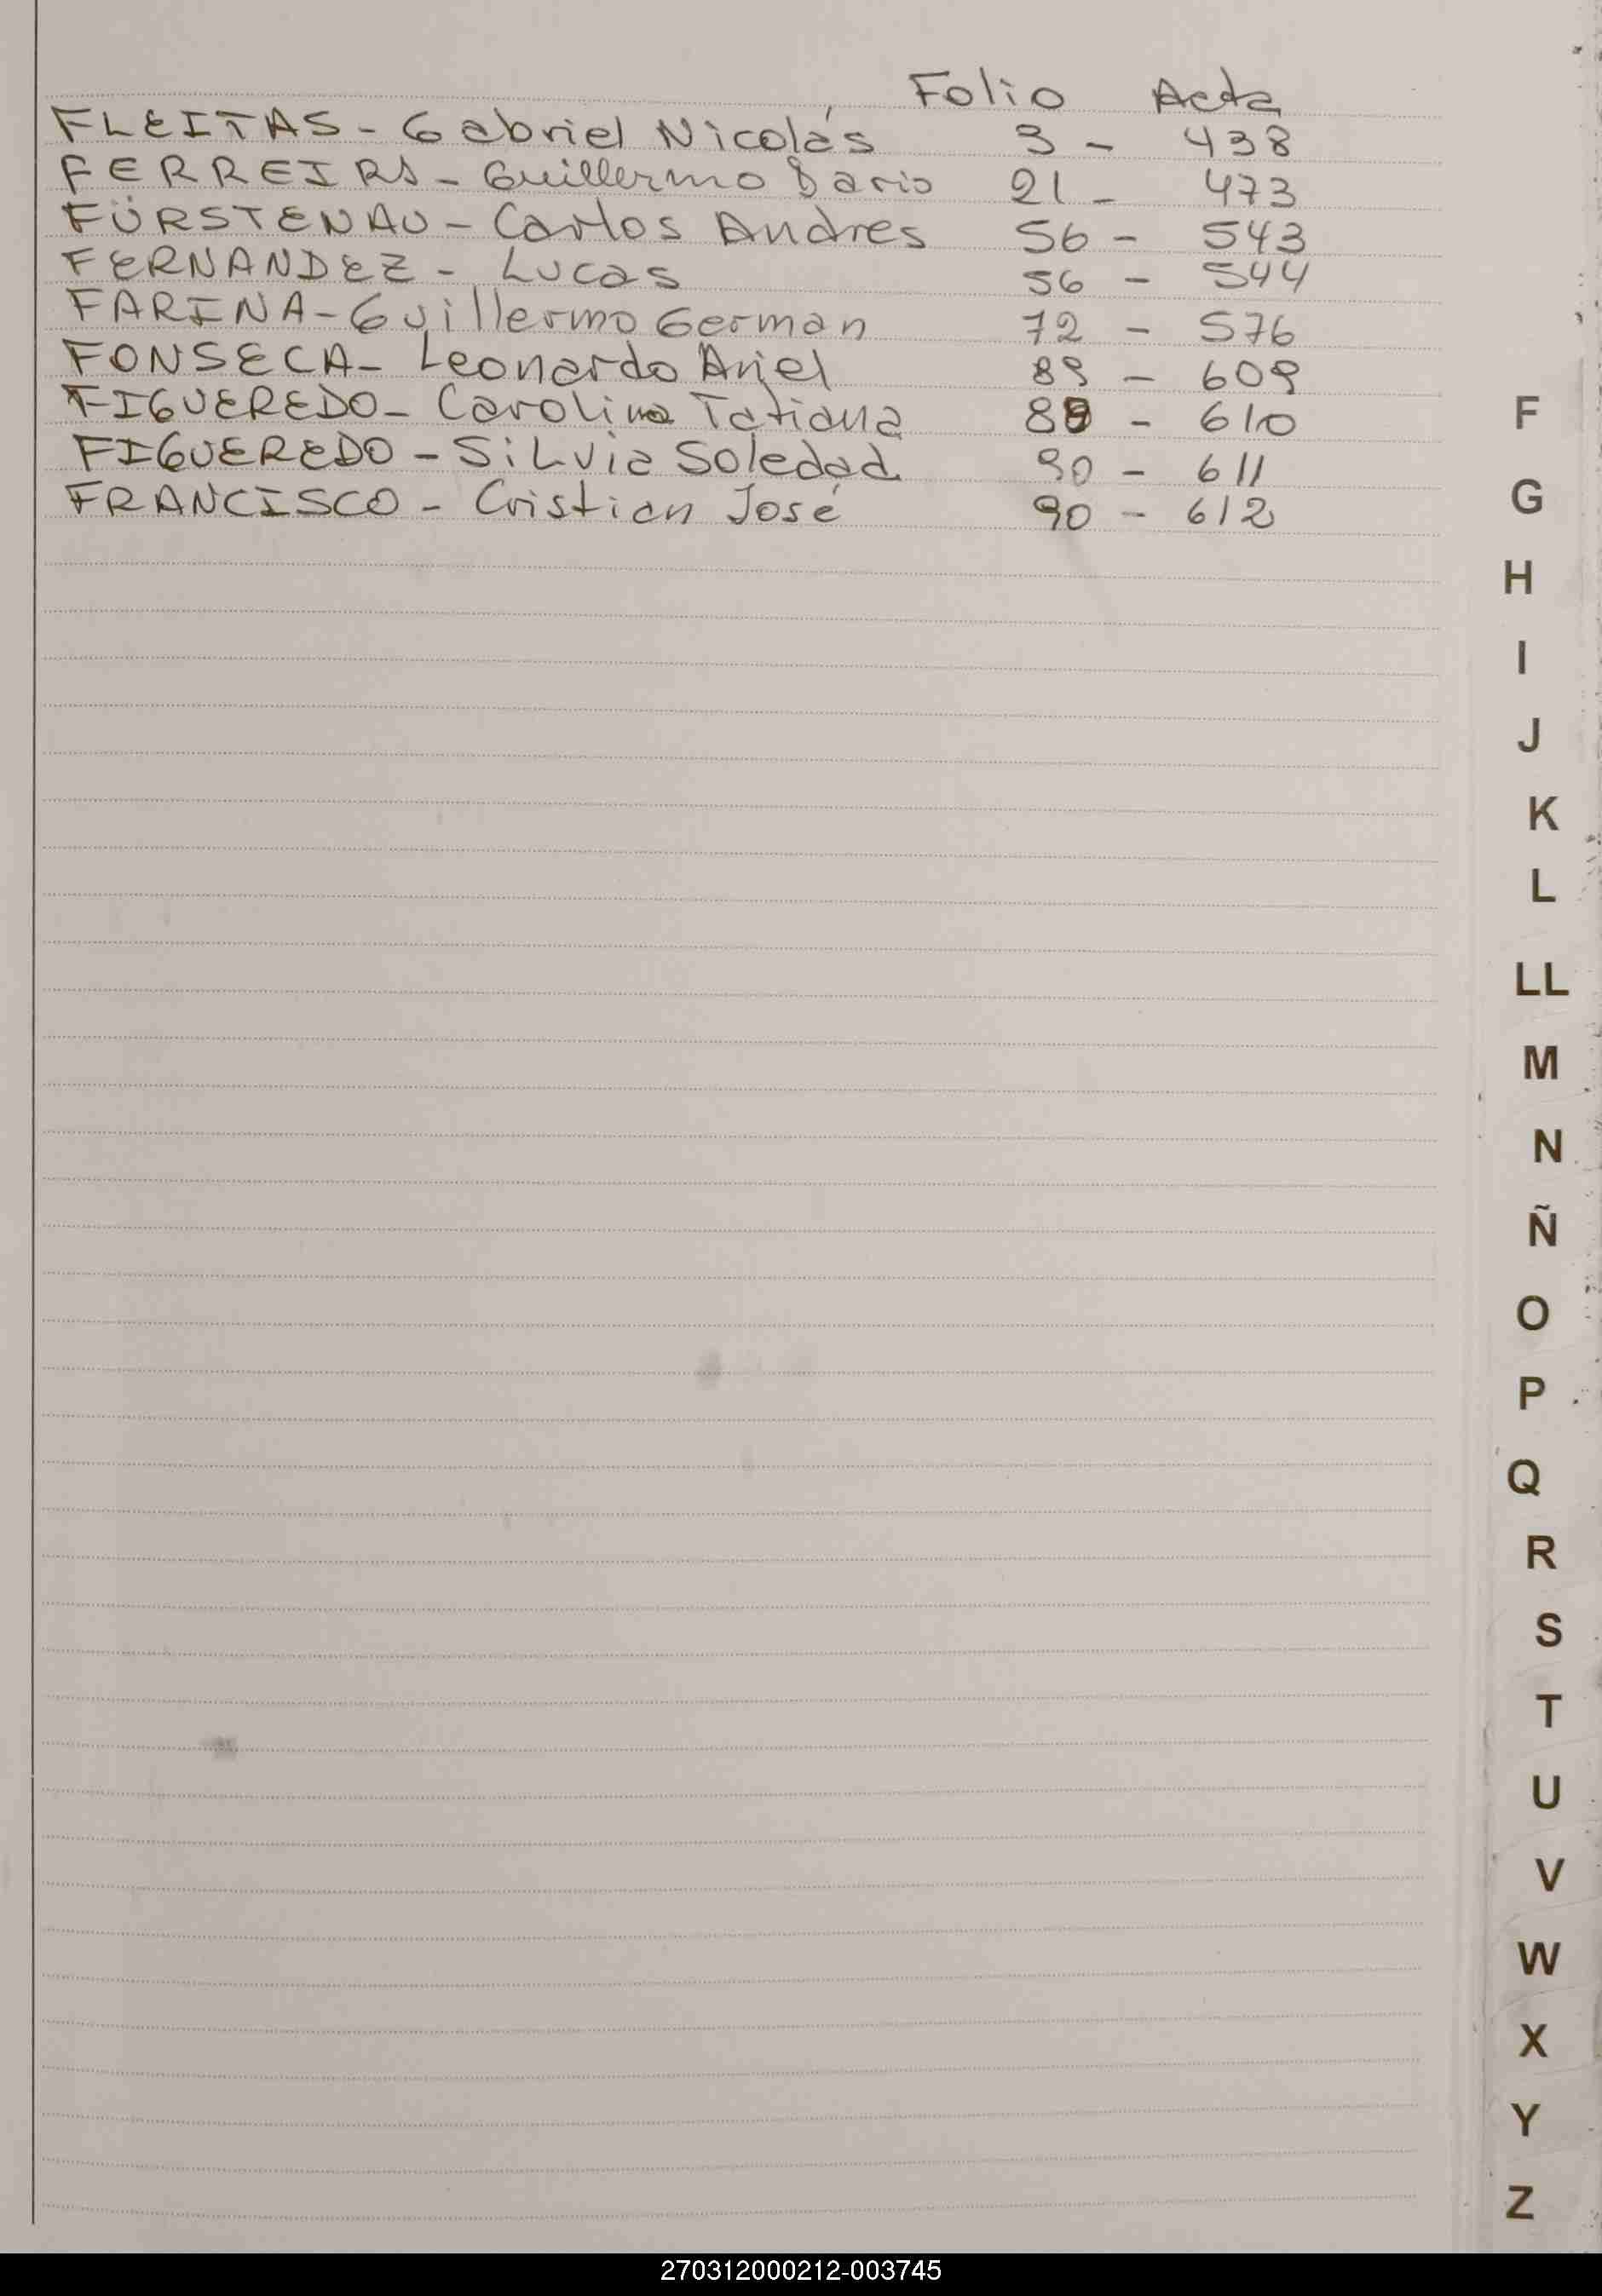 Folio Acta
FLEITAS - Gabriel Nicolás 3 - 438
FERREIRA - Guillermo Dario 21 - 473
FÜRSTENAU - Carlos Andres 56 - 543
FERNANDEZ - Lucas 56 - 544
FARINA - Guillermo German 72 - 576
FONSECA - Leonardo Ariel 89 - 609
FIGUEREDO - Carolina Tatiana 89 - 610
FIGUEREDO - SiLvia Soledad 90 - 611
FRANCISCO - Cristian José 90 - 612
F
G
H
I
J
K
L
LL
M
N
Ñ
O
P
Q
R
S
T
U
V
W
X
Y
Z
270312000212-003745